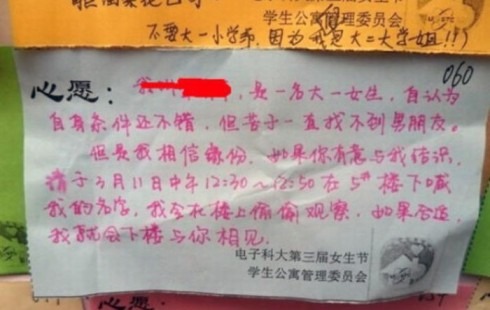 学生公寓管理委员会
不要大一小学师,因为我是大二大学姐!!!)
060
心愿:
我叫 ,是一名大一女生,自认为
自身条件还不错,但苦于一直找不到男朋友。
但是我相信缘份,如果你有意与我结识,
请于3月11日中午12:30~12:50在5#楼下喊
我的名字,我会在楼上偷偷观察,如果合适,
我就会下楼与你相见。
电子科大第三届女生节
学生公寓管理委员会
心愿: